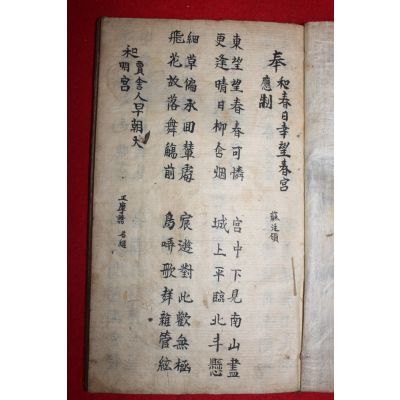 奉和春日幸望春宮
應制
東望望春春可憐
更逢晴日柳含烟
宮中下見南山盡
城上平臨北斗懸
細草偏承回輦處
飛花故落舞觴前
宸遊對此歡無極
鳥哢歌群雜管絃
和賈舍人早朝大
明宮